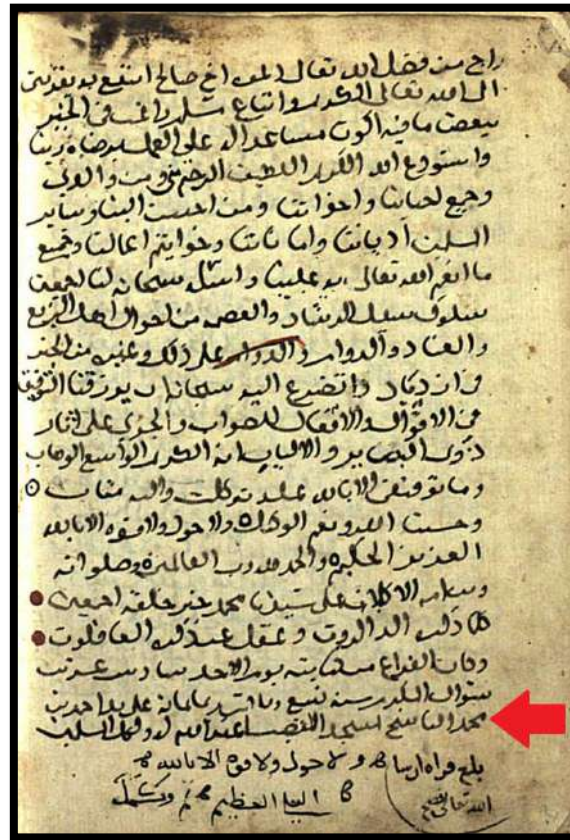 راج من فضل الله تعالى اخ صالح انتفع به تقربني
الى الله تعالى الكريم وانتفاع مسلم راغب في الخير
ببعض ما فيه اكون مساعدا له على العمل بمرضاة ربنا
واستودع الله الكريم اللطيف الرحيم مني ومن والدي
وجميع احبابنا واخواننا ومن احسن الينا وساير
المسلمين أدياننا واماناتنا وخواتيم اعمالنا وجميع
ما انعم الله تعالى به علينا واسئله سبحانه لنا اجمعين
سلوك سبيل الرشاد والعصمة من احوال اهل الزيغ
والعناد والدوام والدوام على ذلك وغيره من الخير
في ازدياد واتضرع اليه سبحانه ان يرزقنا التوفيق
في الاقوال والافعال للصواب والجري على اثار
ذوي البصاير والالباب انه الكريم الواسع الوهاب
وما توفيقي الا بالله عليه توكلت واليه متاب
وحسبنا الله ونعم الوكيل ولا حول ولا قوة الا بالله
العزيز الحكيم والحمد لله رب العالمين وصلواته
وسلامه على سيدنا محمد خير خلقه اجمعين
كلما ذكره الذاكرون وغفل عن ذكره الغافلون
وكان الفراغ من كتابته يوم الاحد سادس عشرين
شوال سنة تسع وثمانمائة على يد احمد بن
محمد الناسخ بالمسجد الاقصى عفا الله له ولكل المسلمين
بلغ قراه ولا حول ولا قوة الا بالله
العلي العظيم تم وكمل
الله تعالى